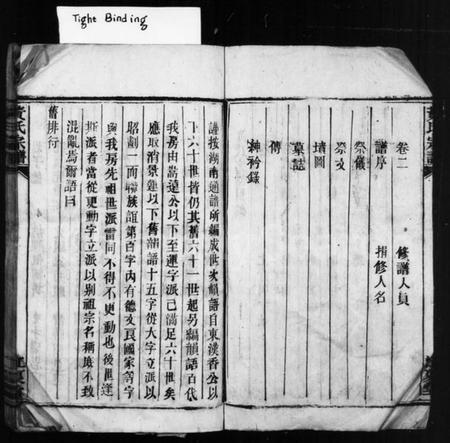 Tight Binding
卷二
譜序 修譜人員
祭儀 捐修人名
祭文
墳圖
墓誌
傳
神衿錄
謹按湖南通譜所編成世次韻語自東漢香公以
下六十世皆仍其舊六十一世起另編韻語百代
我房由嵩遠公以下至運字派已滿足六十世矣
應取消景運以下舊韻語十五字從大字立派以
昭劃一而聯族誼第百字內有德文良國家等字
與我房先祖世派雷同不得不更動也後世逢
斯派者當從更動字立派以別祖宗名稱庶不致
混亂焉爾語曰
舊排行
黃氏宗譜